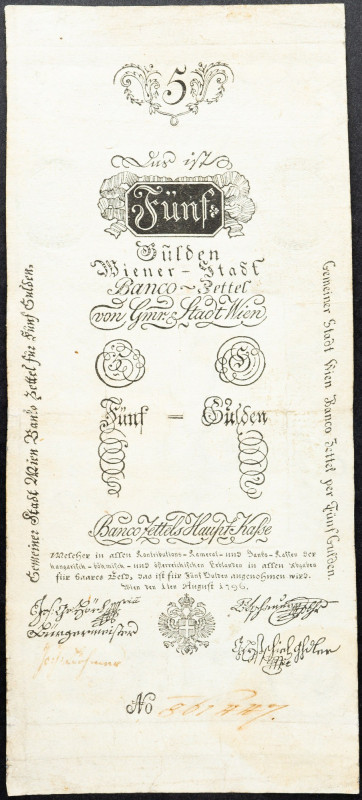 5
Das ist
Fünf
Gulden
Wiener-Stadt
Banco-Zettel
von Gmr. Stadt Wien
5 5
Fünf = Gulden
Gemeiner Stadt Wien Banco Zettel für Fünf Gulden.
Gemeiner Stadt Wien Banco Zettel per Fünf Gulden.
Banco Zettels Haupt-Kasse
Welcher in allen Kontributions-Kameral-und Banko-Kassen der
hungarisch-böhmisch- und österreichischen Erblanden in allen Abgaben
für baares Geld, das ist für Fünf Gulden angenommen wird.
Wien den 1ten August 1796.
Bürgermeister
No